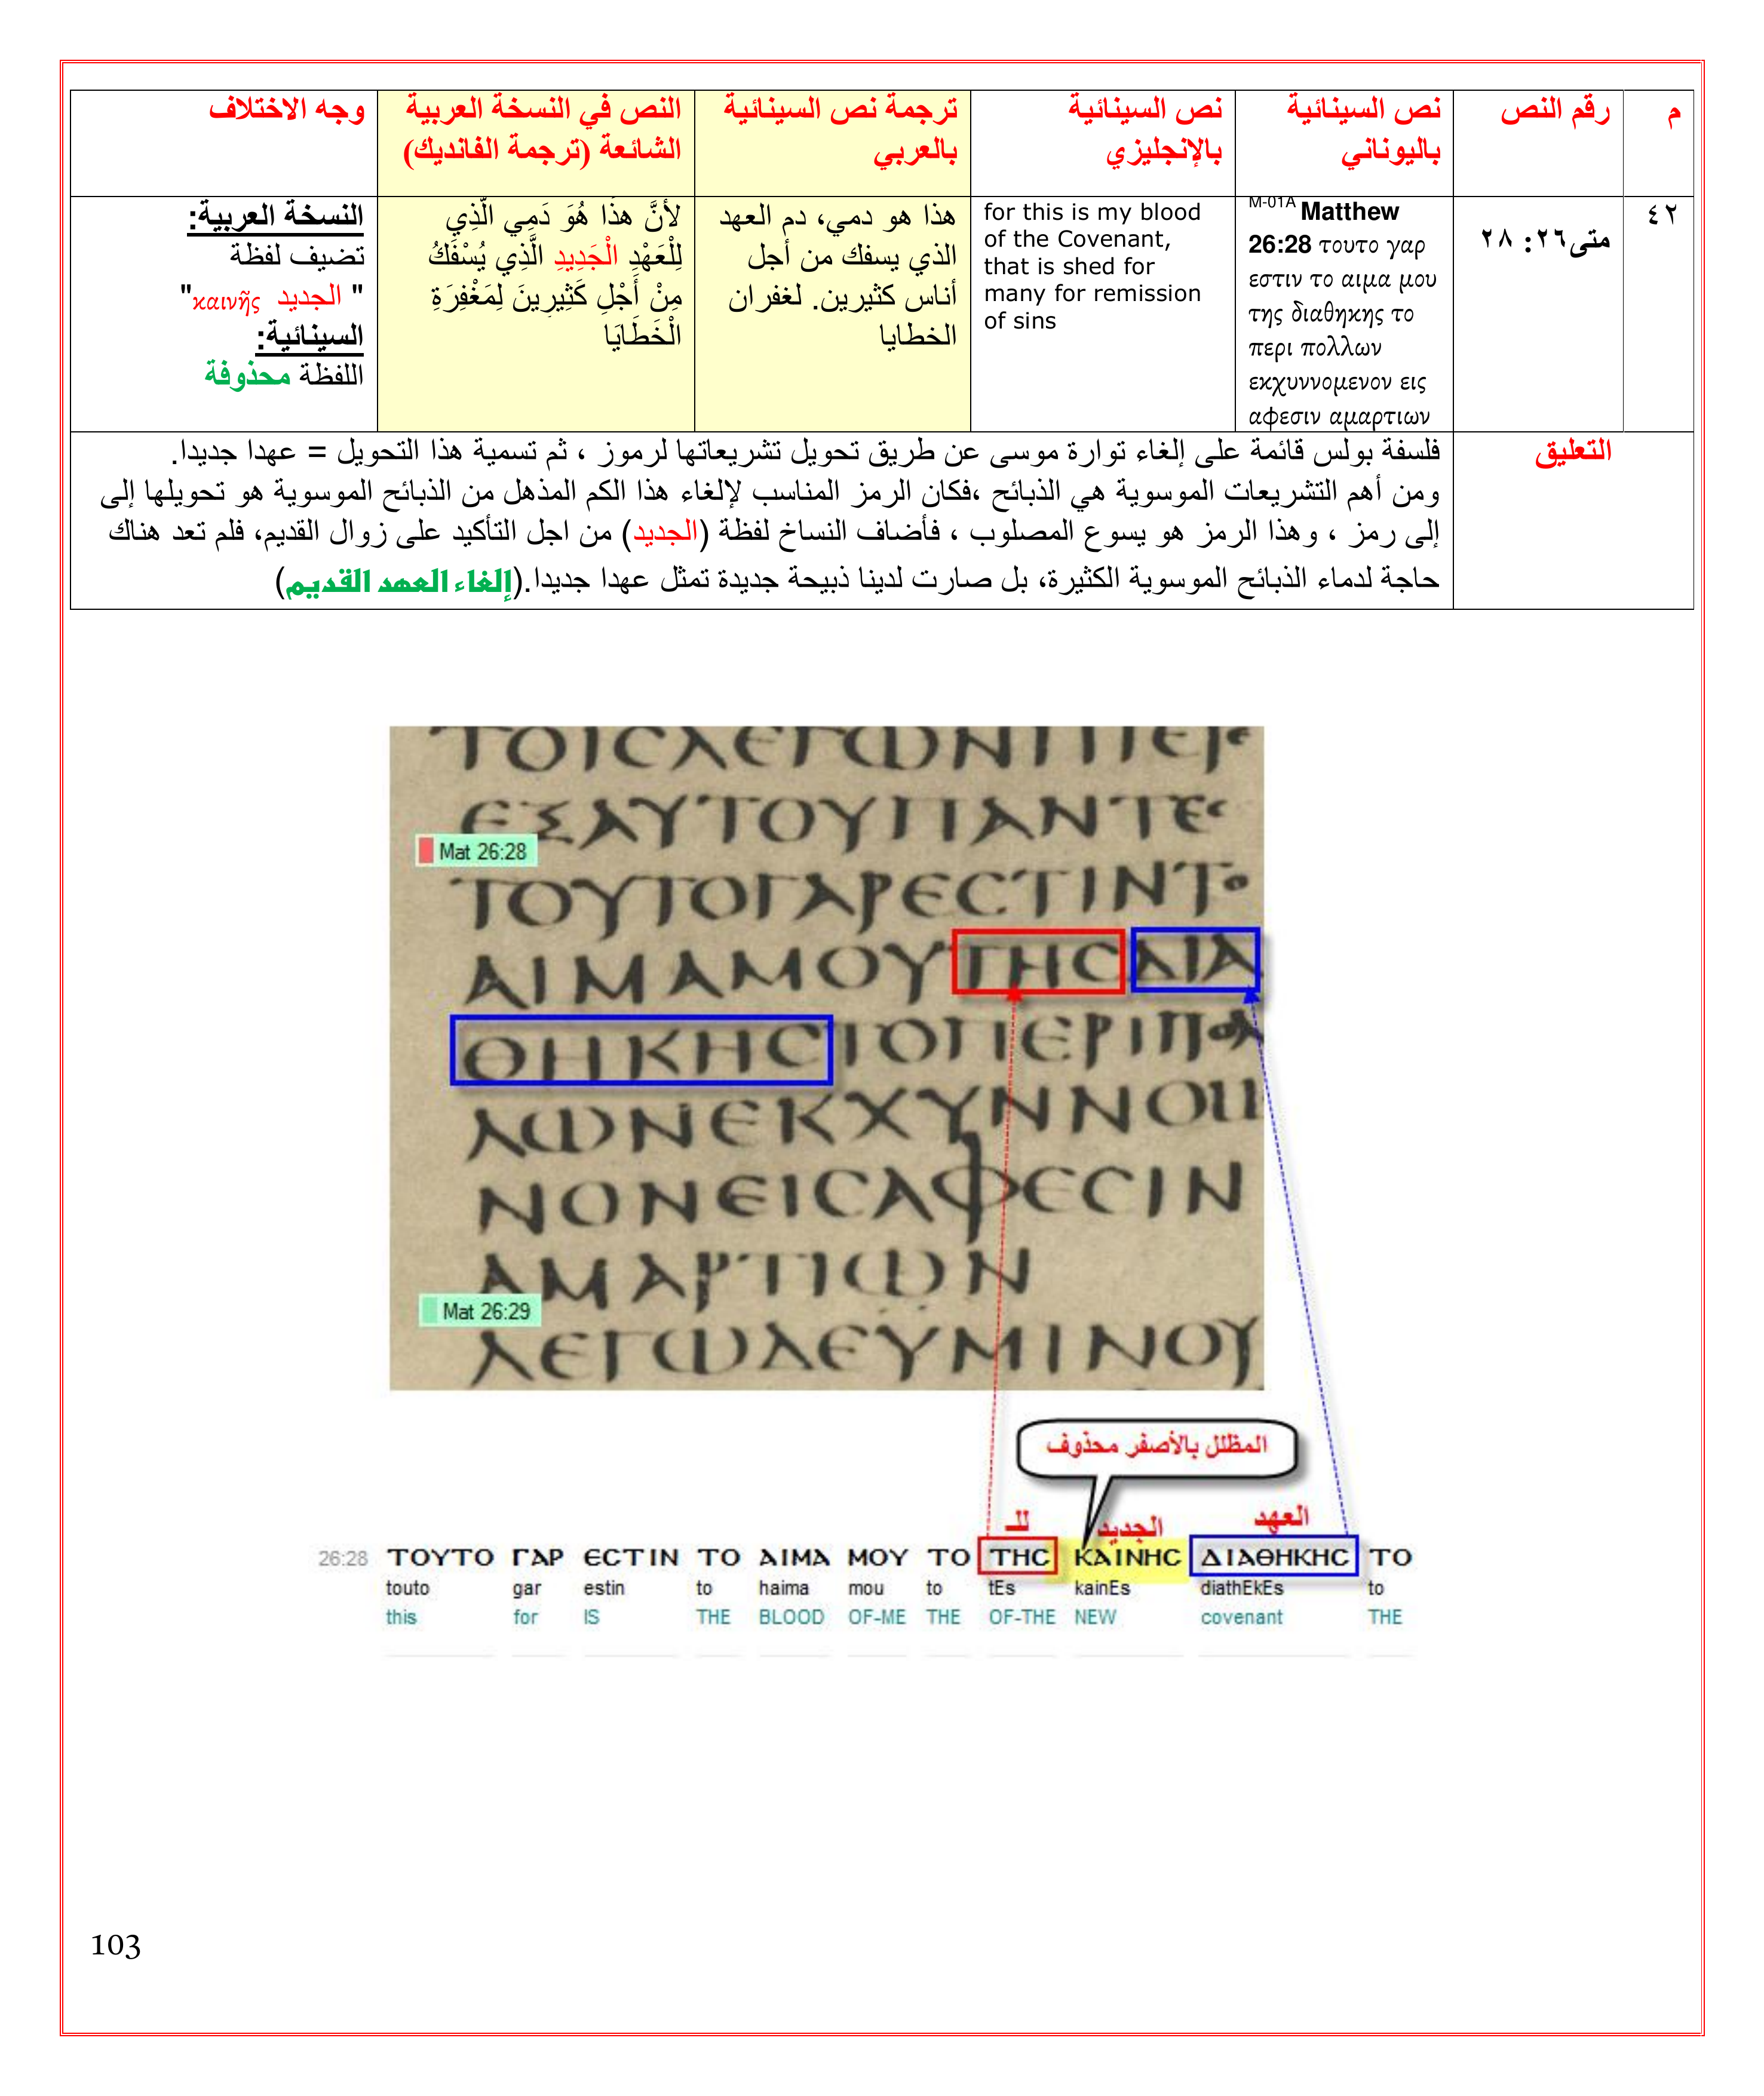 م
رقم النص
نص السينائية
باليوناني
نص السينائية
بالإنجليزي
ترجمة نص السينائية
بالعربي
النص في النسخة العربية
الشائعة (ترجمة الفانديك)
وجه الاختلاف
٤٢
متى٢٦: ٢٨
M-01A Matthew
26:28 τουτο γαρ
εστιν το αιμα μου
της διαθηκης το
περι πολλων
εκχυννομενον εις
αφεσιν αμαρτιων
for this is my blood
of the Covenant,
that is shed for
many for remission
of sins
هذا هو دمي، دم العهد
الذي يسفك من أجل
أناس كثيرين. لغفران
الخطايا
لأَنَّ هذَا هُوَ دَمِي الَّذِي
لِلْعَهْدِ الْجَدِيدِ الَّذِي يُسْفَكُ
مِنْ أَجْلِ كَثِيرِينَ لِمَغْفِرَةِ
الْخَطَايَا
النسخة العربية:
تضيف لفظة
" الجديد καινῆς"
السينائية:
اللفظة محذوفة
التعليق
فلسفة بولس قائمة على إلغاء توارة موسى عن طريق تحويل تشريعاتها لرموز ، ثم تسمية هذا التحويل = عهدا جديدا.
ومن أهم التشريعات الموسوية هي الذبائح ،فكان الرمز المناسب لإلغاء هذا الكم المذهل من الذبائح الموسوية هو تحويلها إلى
إلى رمز ، وهذا الرمز هو يسوع المصلوب ، فأضاف النساخ لفظة (الجديد) من اجل التأكيد على زوال القديم، فلم تعد هناك
حاجة لدماء الذبائح الموسوية الكثيرة، بل صارت لدينا ذبيحة جديدة تمثل عهدا جديدا.(إلغاء العهد القديم)
ΤΟΙCΛΕΓΩΝΠΙΕΤΕ
ΕΞΑΥΤΟΥΠΑΝΤΕC
Mat 26:28
ΤΟΥΤΟΓΑΡΕCΤΙΝΤΟ
ΑΙΜΑΜΟΥΤΗCΔΙΑ
ΘΗΚΗCΤΟΠΕΡΙΠΟΛ
ΛΩΝΕΚΧΥΝΝΟΜΕ
ΝΟΝΕΙCΑΦΕCΙΝ
ΑΜΑΡΤΙΩΝ
Mat 26:29
ΛΕΓΩΔΕΥΜΙΝΟΥ
المظلل بالأصفر محذوف
للـ الجديد العهد
26:28 ΤΟΥΤΟ ΓΑΡ ΕCΤΙΝ ΤΟ ΑΙΜΑ ΜΟΥ ΤΟ ΤΗC ΚΑΙΝΗC ΔΙΑΘΗΚΗC ΤΟ
touto gar estin to haima mou to tEs kainEs diathEkEs to
this for IS THE BLOOD OF-ME THE OF-THE NEW covenant THE
103